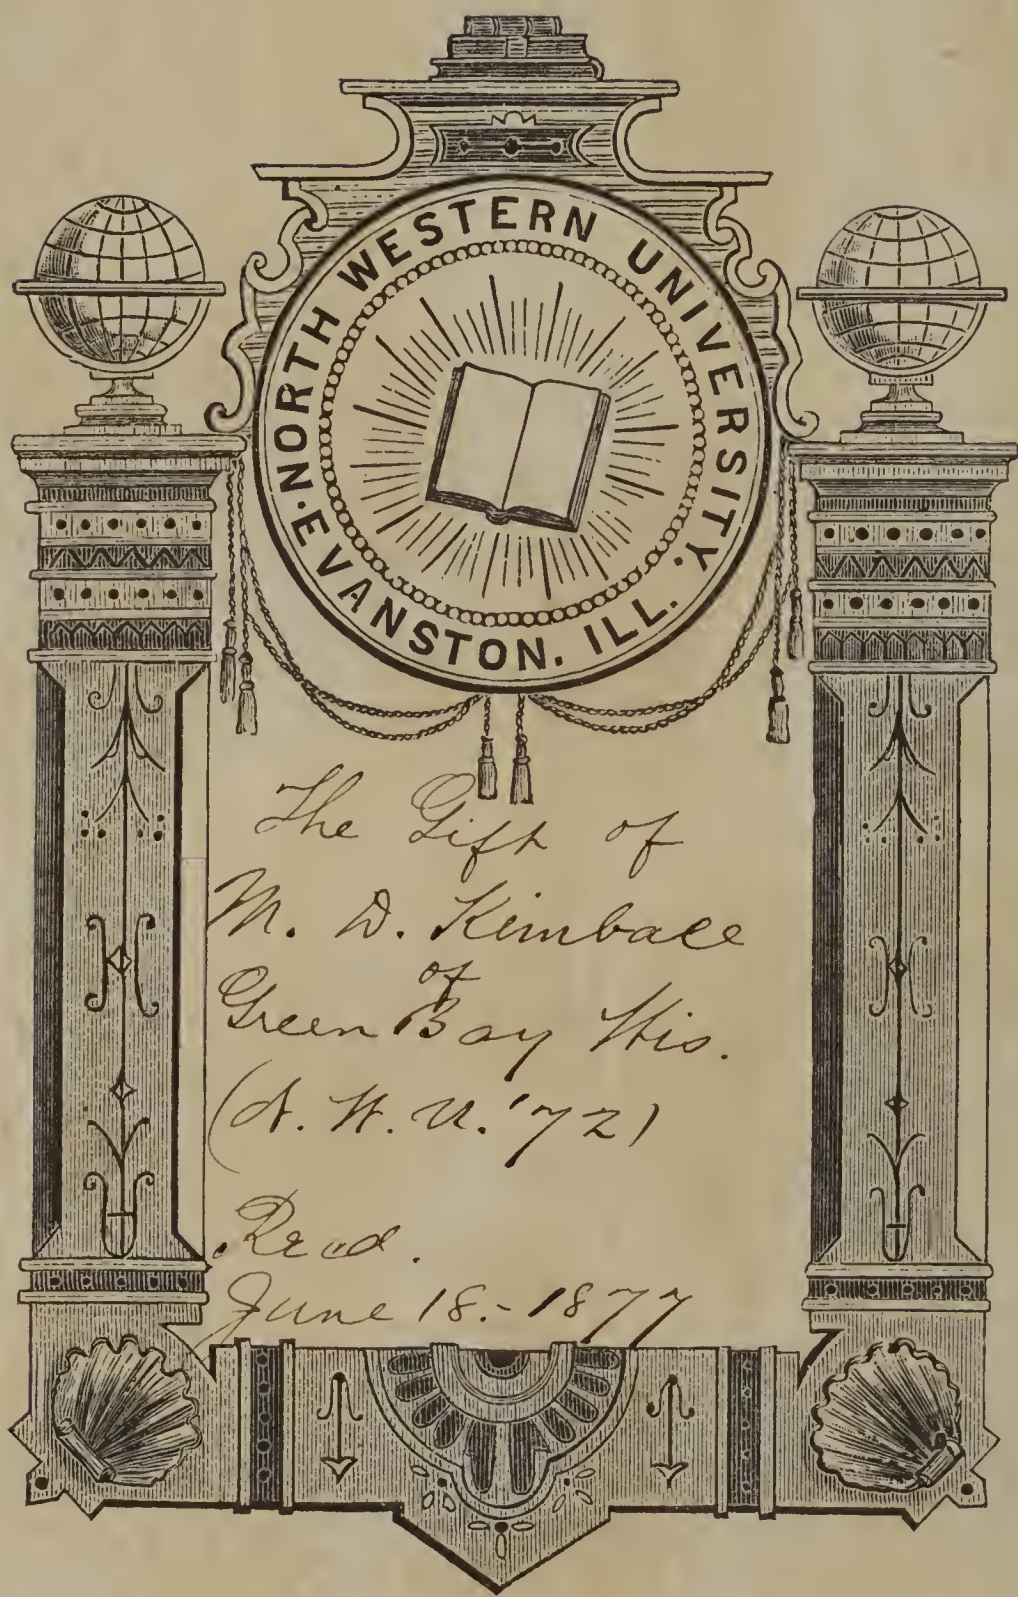 NORTH WESTERN UNIVERSITY.
EVANSTON. ILL.
The Gift of
M. D. Kimball
of
Green Bay Wis.
(N. W. U. '72)
Recd.
June 18.-1877